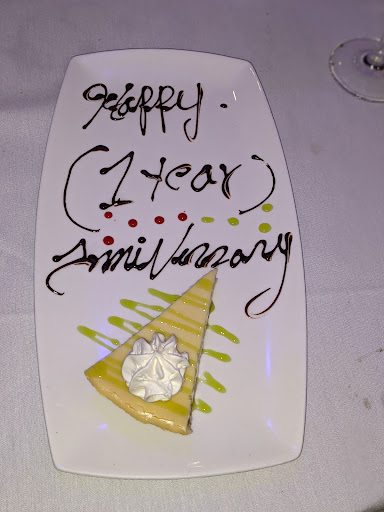 Happy.
(1 year)
Anniversary